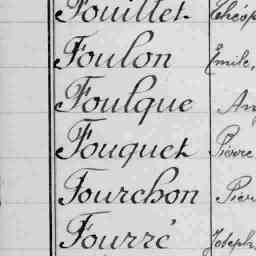 Fouillet
Foulon Émile,
Foulque
Fouquet Pierre
Fourchon
Fourré Joseph,